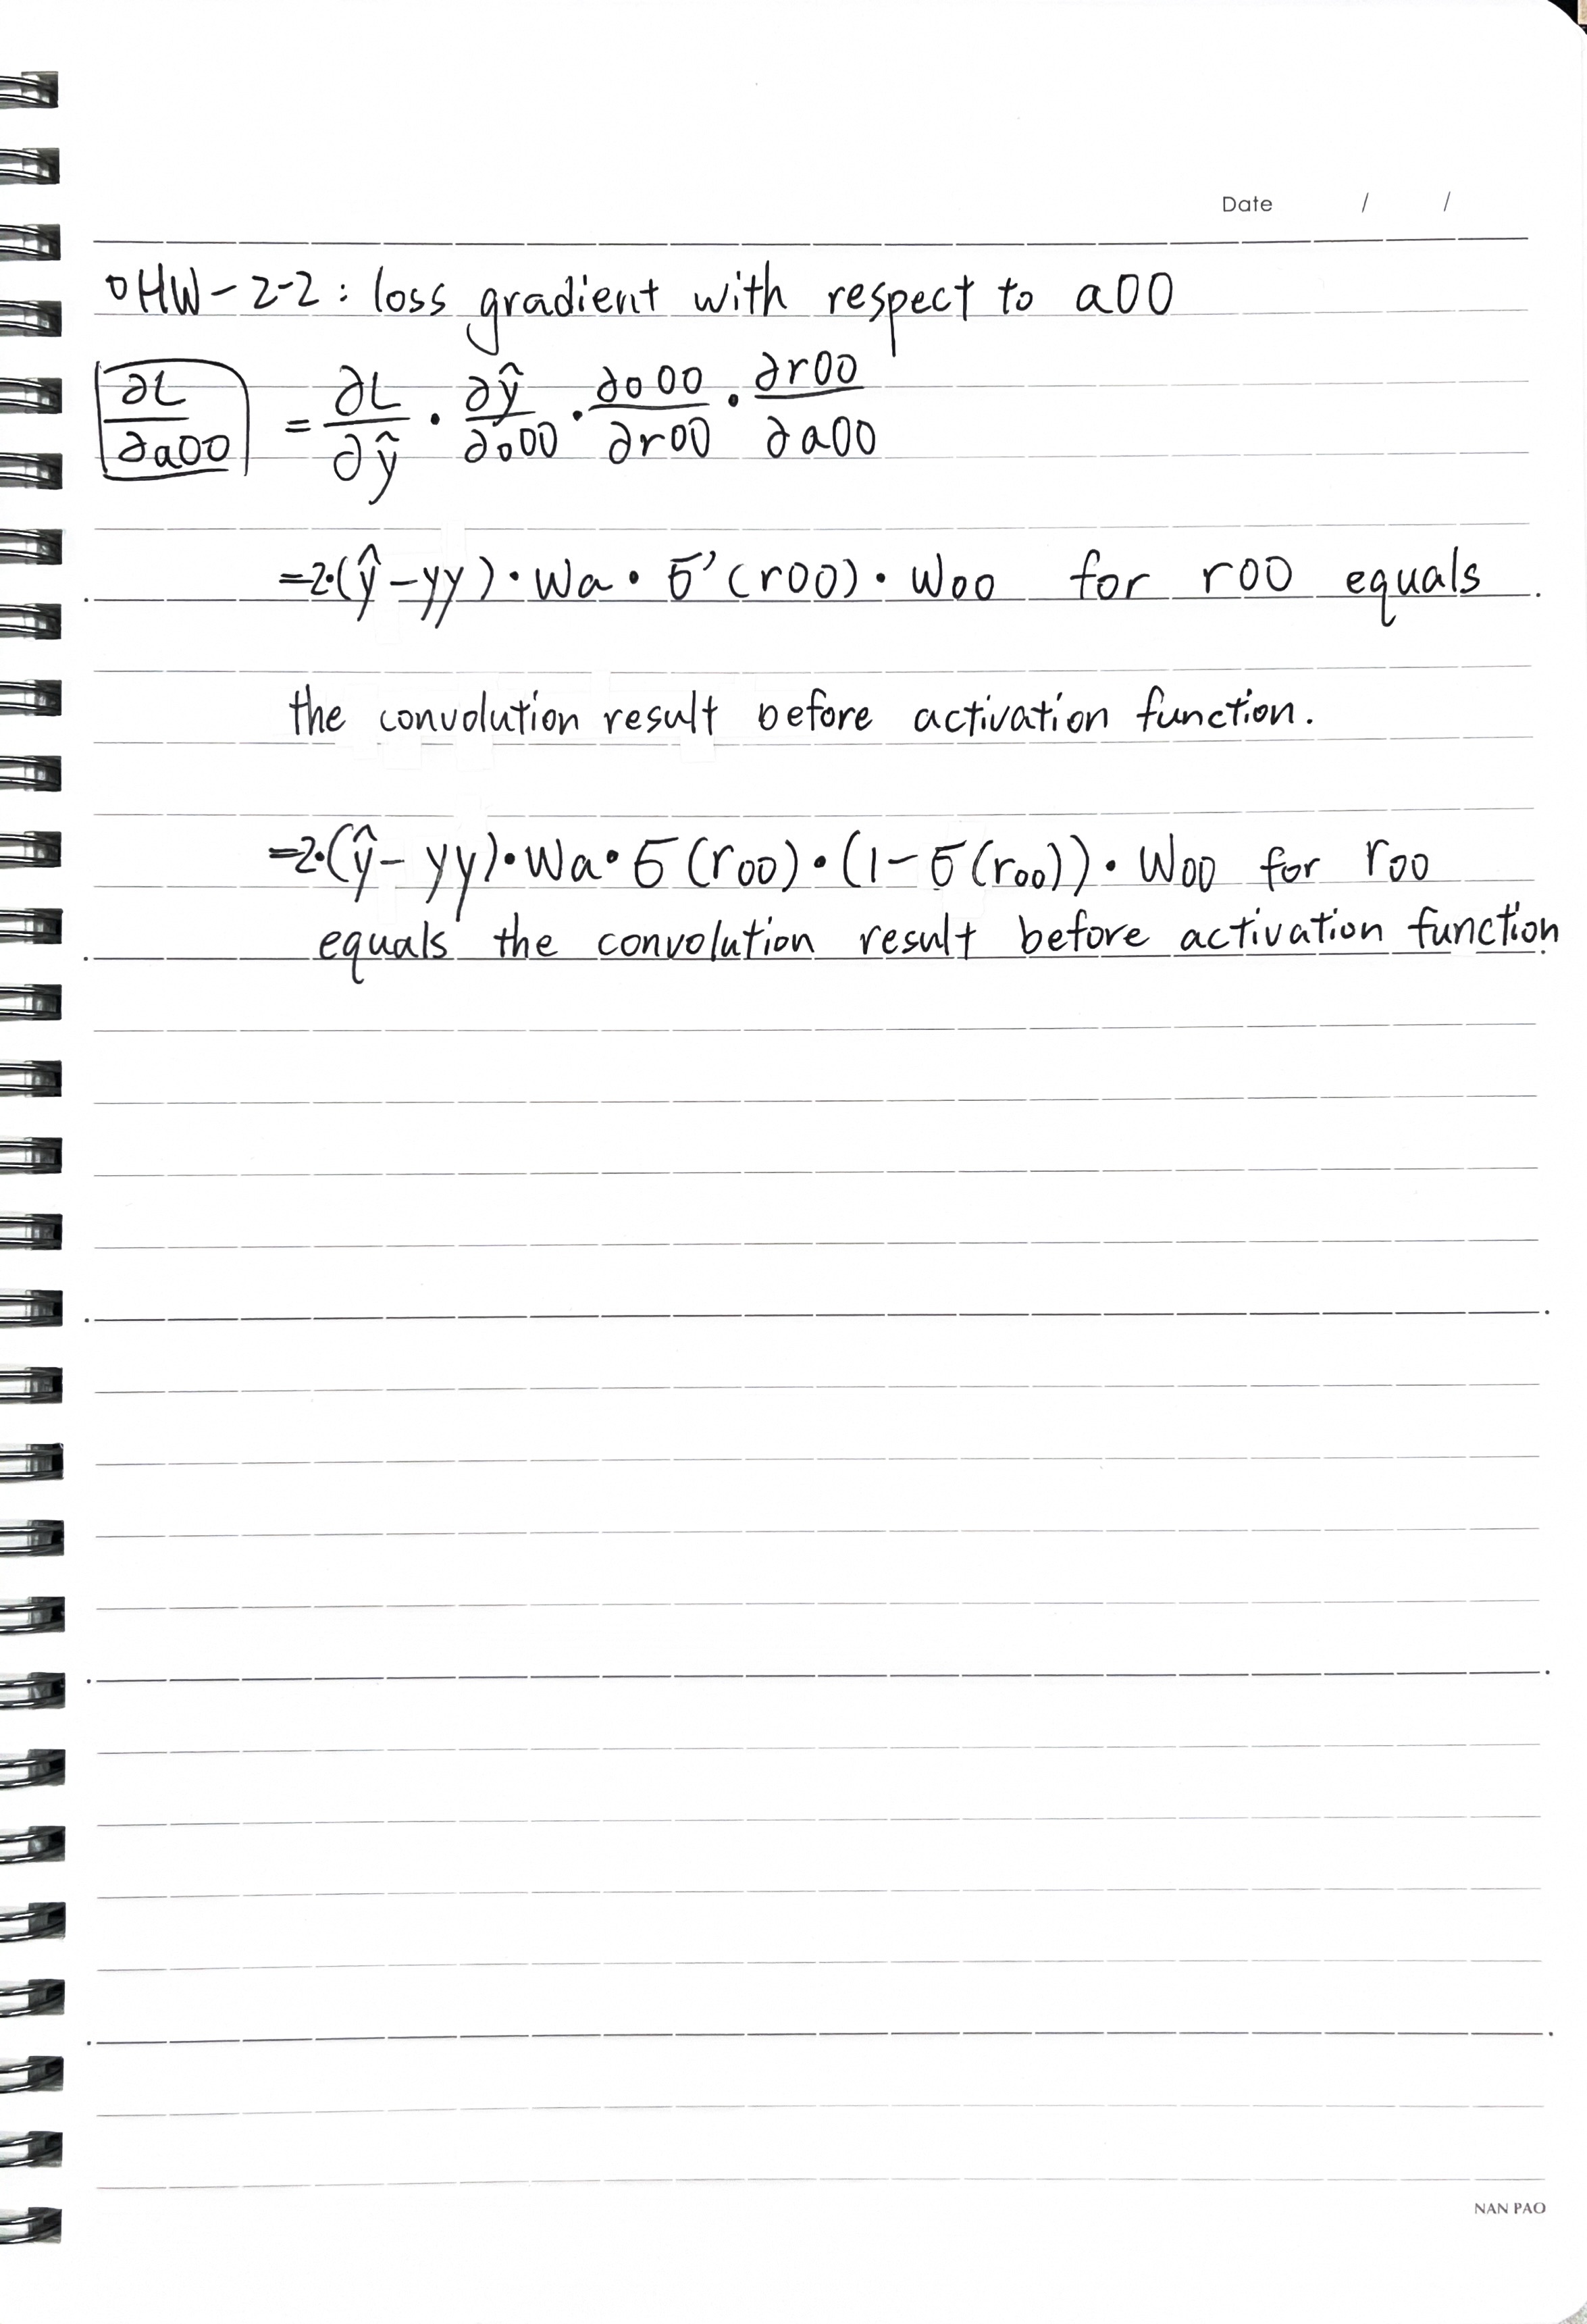 Date / /
○HW-2-2: loss gradient with respect to a00
∂L/∂a00 = ∂L/∂ŷ · ∂ŷ/∂o00 · ∂o00/∂r00 · ∂r00/∂a00
=2·(ŷ-yy)·Wa·σ'(r00)·W00 for r00 equals
the convolution result before activation function.
=2·(ŷ-yy)·Wa·σ(r00)·(1-σ(r00))·W00 for r00
equals the convolution result before activation function.
NAN PAO